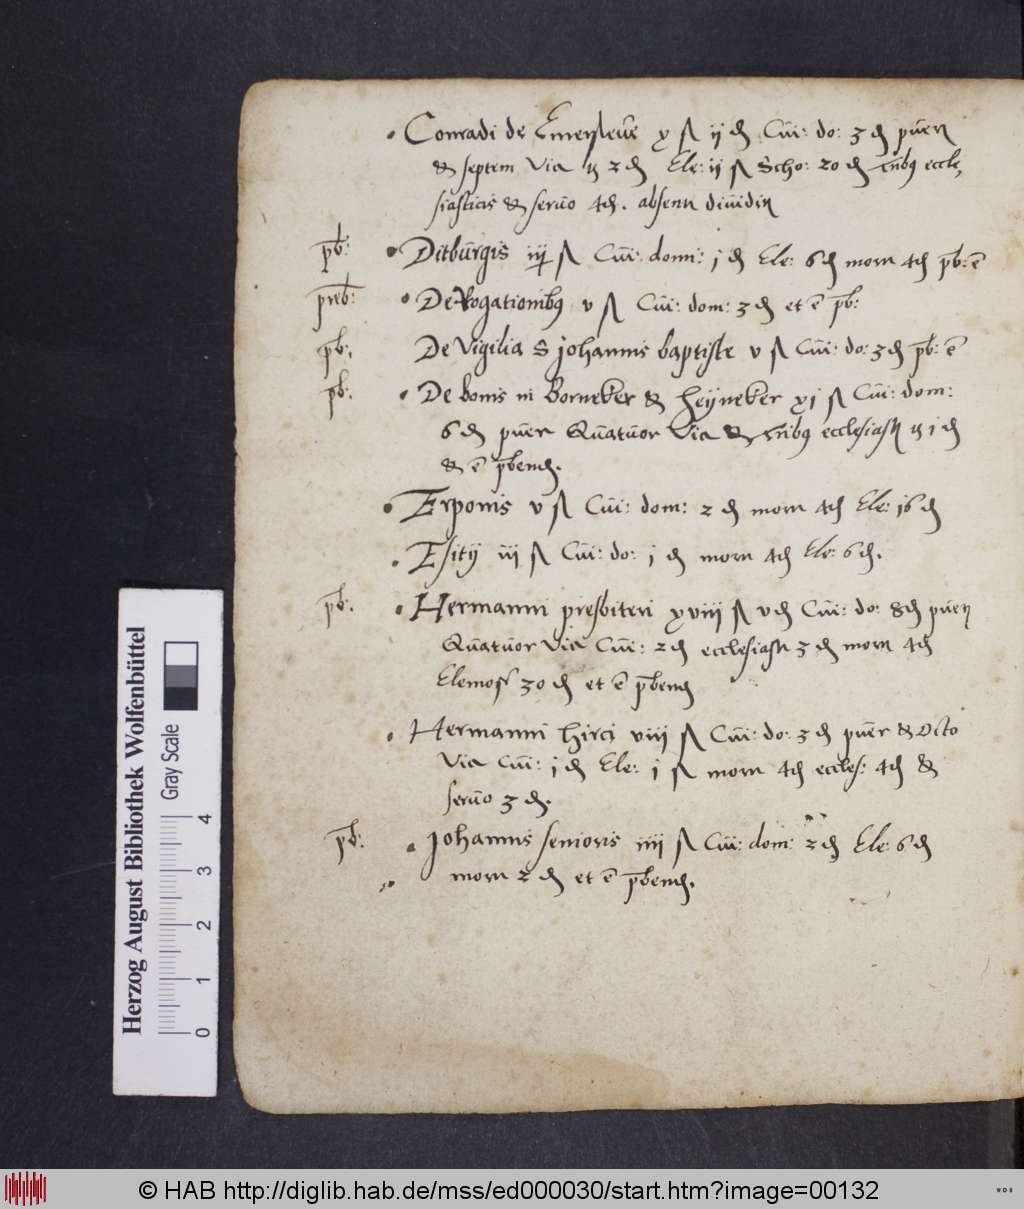 • Conradi de Emersleue x ß ij ₰ Cui: do: 3 ₰ pueri
& septem Via 2 ₰ Ele: ij ß Scho: 20 ₰ eccle,
siasticis & seruo 4 ₰. absenti diuidi
pb: • Ditburgis iiij ß Cui: domi: j ₰ Ele: 6 ₰ morn 4 ₰ pb: ē
preb: • De Rogationibq v ß Cui: dom: 3 ₰ et ē pb:
pb: De Vigilia S Johannis baptiste v ß Cui: do: 3 ₰ pb: ē
pb. • De bonis in Borneker & Heyneker xi ß Cui: dom:
6 ₰ puer Quatuor Via & ecclesiast 1 ₰
& ē pbend.
• Erponis v ß Cui: dom: 2 ₰ morn 4 ₰ Ele: 16 ₰
• Esitij iij ß Cui: do: j ₰ morn 4 ₰ Ele: 6 ₰.
pb. • Hermanni presbiteri xviij ß v ₰ Cui: do: 8 ₰ pueri
Quatuor Via Cui: 2 ₰ ecclesiast 3 ₰ morn 4 ₰
Elemos 30 ₰ et ē pbend
• Hermanni Hirci viij ß Cui: do: 3 ₰ puer & Octo
Via Cui: j ₰ Ele: j ß morn 4 ₰ eccles: 4 ₰ &
seruo 3 ₰.
pb: • Johannis senioris iiij ß Cui: dom: 2 ₰ Ele: 6 ₰
morn 2 ₰ et ē pbend.
Herzog August Bibliothek Wolfenbüttel
Gray Scale
0 1 2 3 4
© HAB http://diglib.hab.de/mss/ed000030/start.htm?image=00132